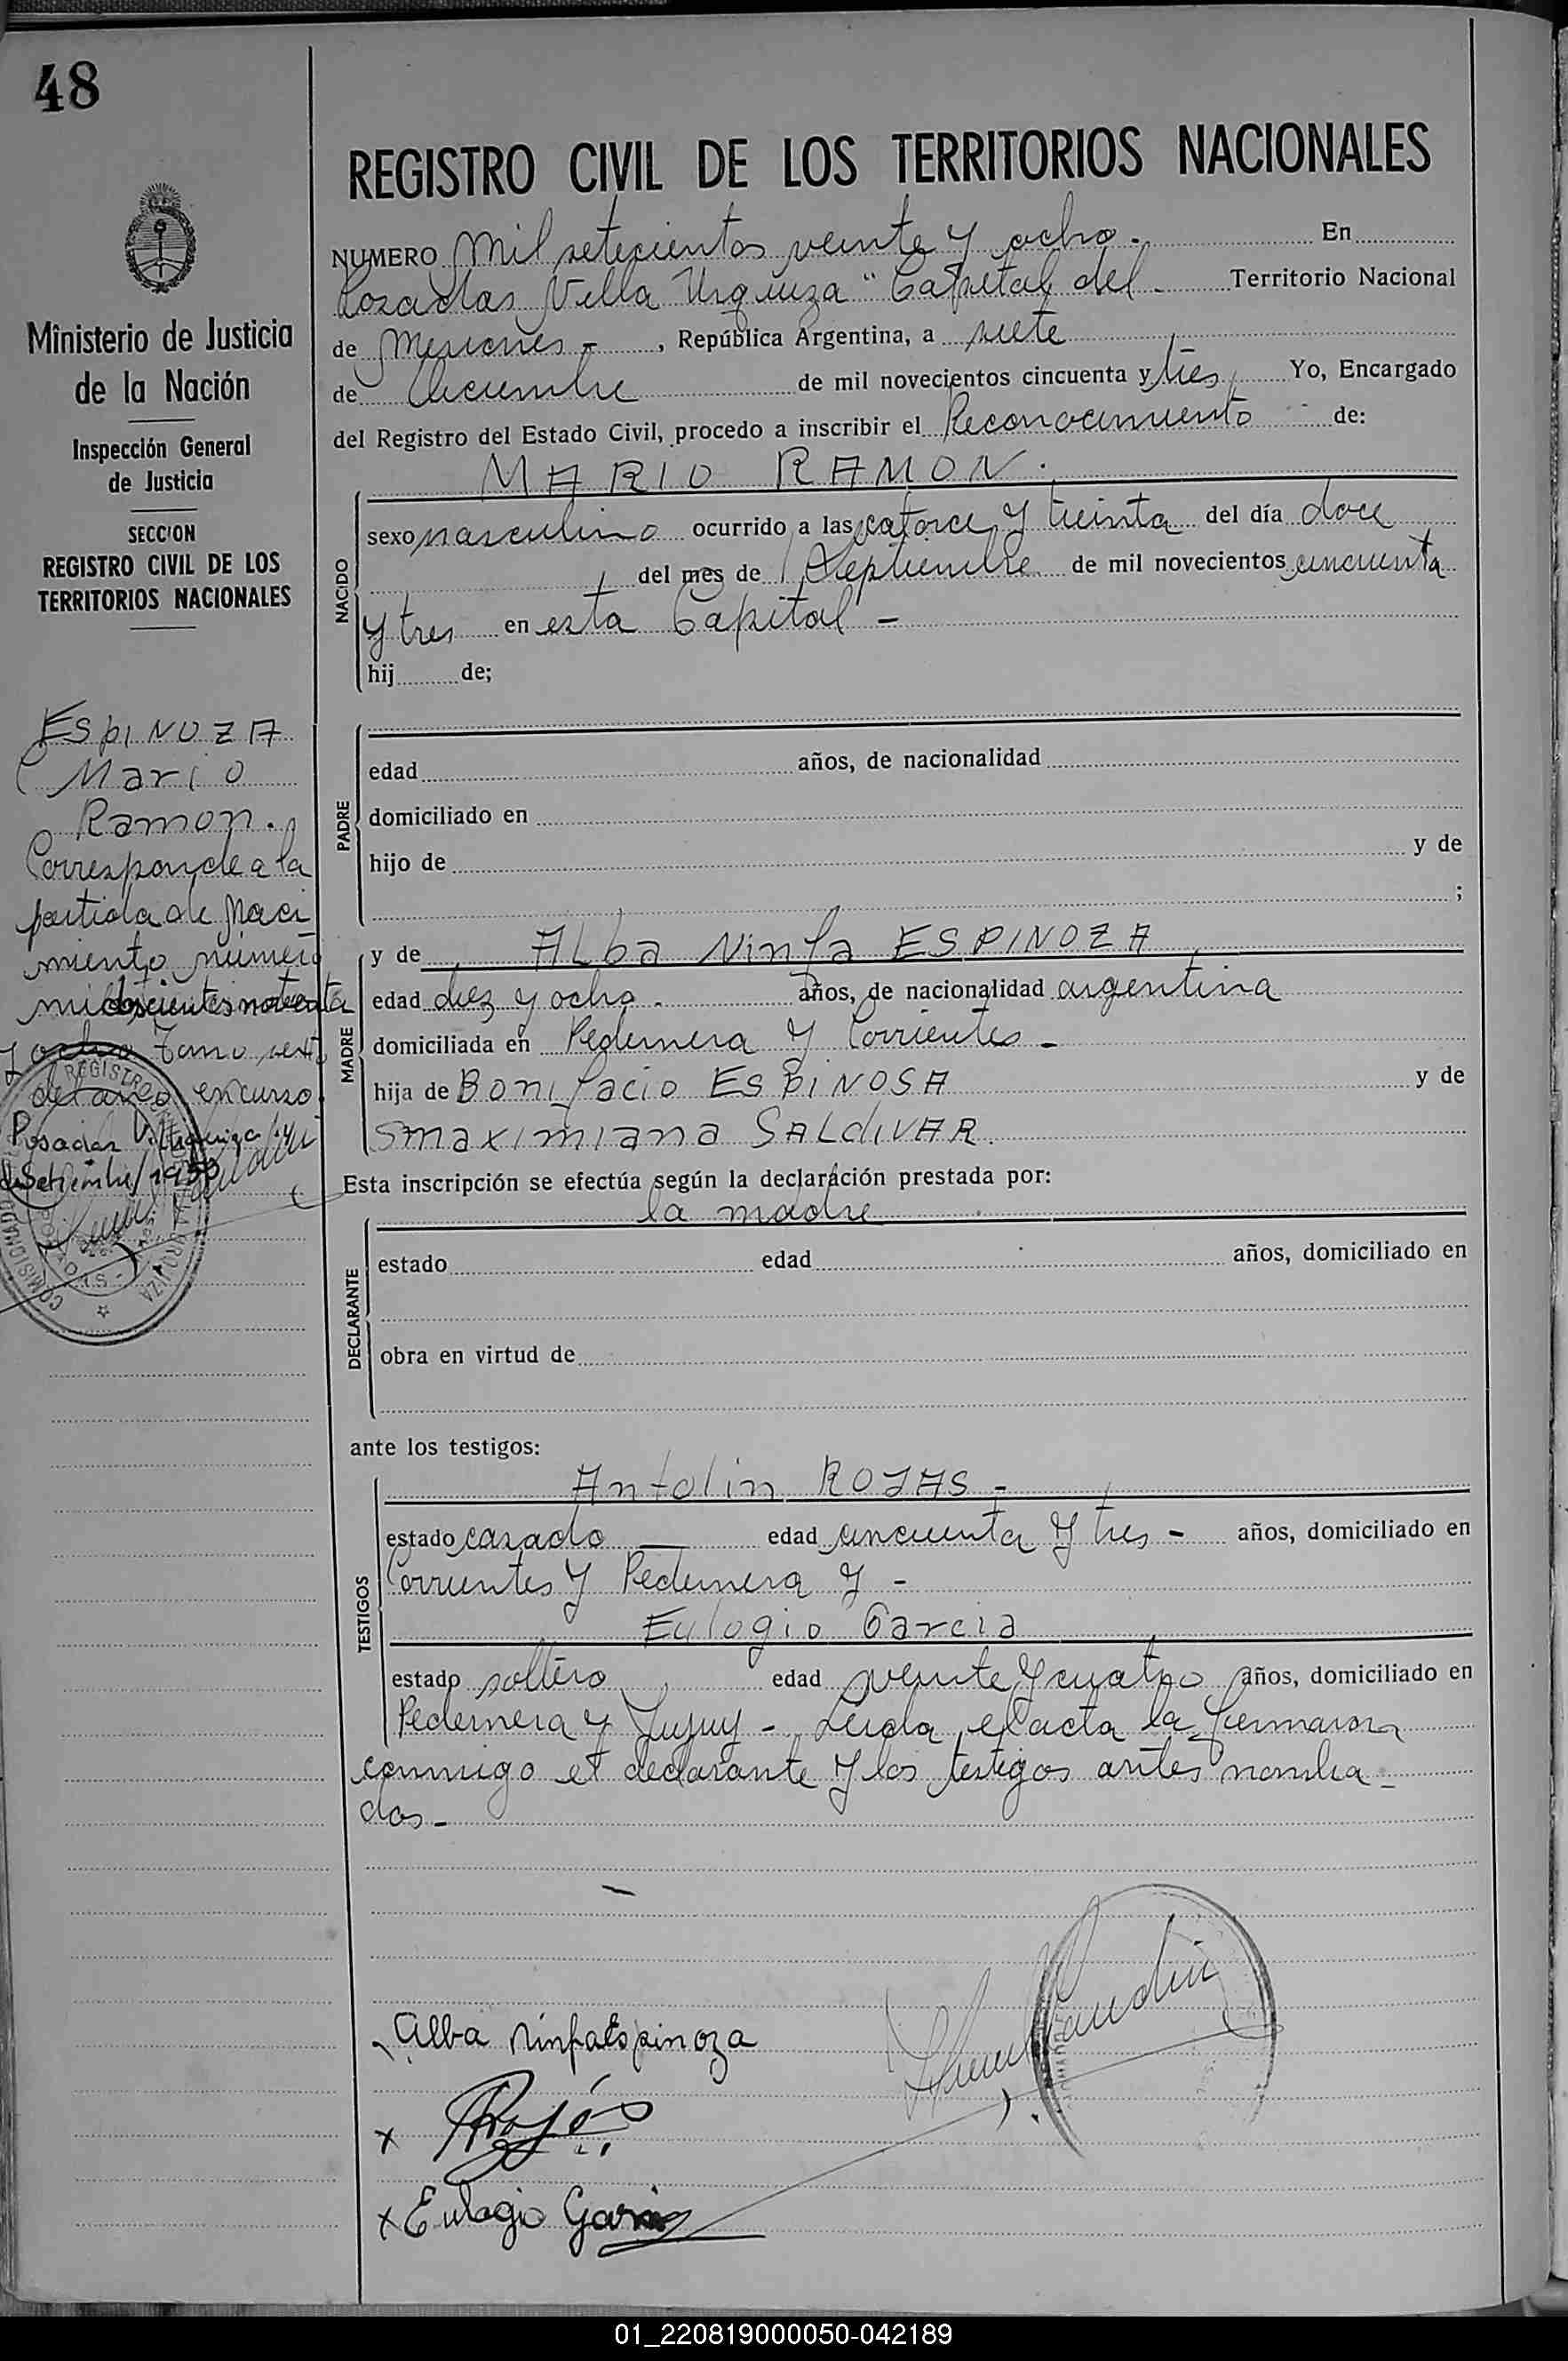 48
REGISTRO CIVIL DE LOS TERRITORIOS NACIONALES
NUMERO Mil setecientos veinte y ocho.- En
Posadas Villa Urquiza "Capital del - Territorio Nacional
de Misiones - , República Argentina, a siete
de Diciembre de mil novecientos cincuenta y tres Yo, Encargado
del Registro del Estado Civil, procedo a inscribir el Reconocimiento de:
MARIO RAMON.
NACIDO
sexo masculino ocurrido a las catorce y treinta del día doce
del mes de Septiembre de mil novecientos cincuenta
y tres en esta Capital -
hij de;
PADRE
edad años, de nacionalidad
domiciliado en
hijo de y de
;
MADRE
y de Alba Ninfa ESPINOZA
edad diez y ocho. años, de nacionalidad argentina
domiciliada en Pedernera y Corrientes -
hija de Bonifacio ESPINOSA y de
Smaximiana SALdIVAR.
Esta inscripción se efectúa según la declaración prestada por:
la madre
DECLARANTE
estado edad años, domiciliado en
obra en virtud de
ante los testigos:
TESTIGOS
Antolin ROJAS -
estado casado edad cincuenta y tres - años, domiciliado en
Corrientes y Pedernera y -
Eulogio Garcia
estado soltero edad veinte y cuatro años, domiciliado en
Pedernera y Jujuy - Leida el acta la firmaron
conmigo el declarante y los testigos antes nombra-
dos -
Alba Ninfa Espinoza
x Rojas
x Eulogio Garcia
Ministerio de Justicia
de la Nación
Inspección General
de Justicia
SECCION
REGISTRO CIVIL DE LOS
TERRITORIOS NACIONALES
ESPINOZA
Mario
Ramon.
Corresponde a la
partida de Naci
miento número
mil doscientos noventa
y ocho Tomo
del año en curso
Posadas V. Urquiza
Setiembre/1953
REGISTRO
URQUIZA
01_220819000050-042189